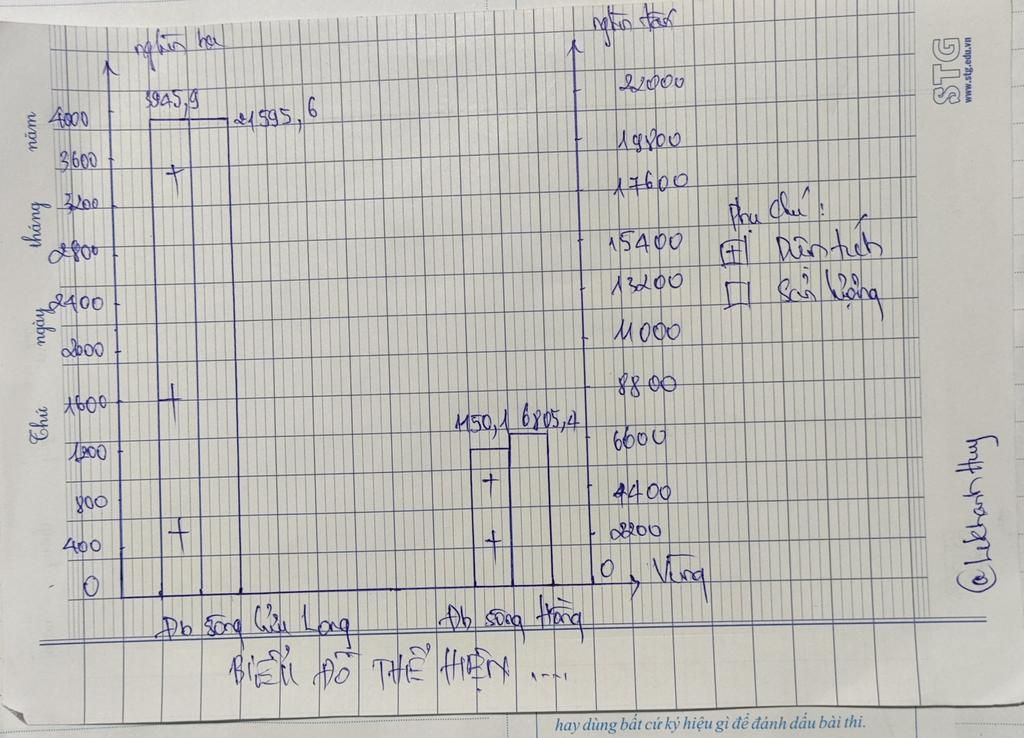 nghìn ha
nghìn tấn
3945,9
21595,6
4000
3600
3200
2800
2400
2000
1600
1200
800
400
0
22000
19800
17600
15400
13200
11000
8800
6600
4400
2200
0
Vùng
1150,1 6805,4
Phụ chú:
+ Diện tích
Sản lượng
Đb sông Cửu Long
Đb sông Hồng
BIỂU ĐỒ THỂ HIỆN .....
Thứ ngày tháng năm
STG
www.stg.edu.vn
@LeKhanhHuy
hay dùng bất cứ ký hiệu gì để đánh dấu bài thi.